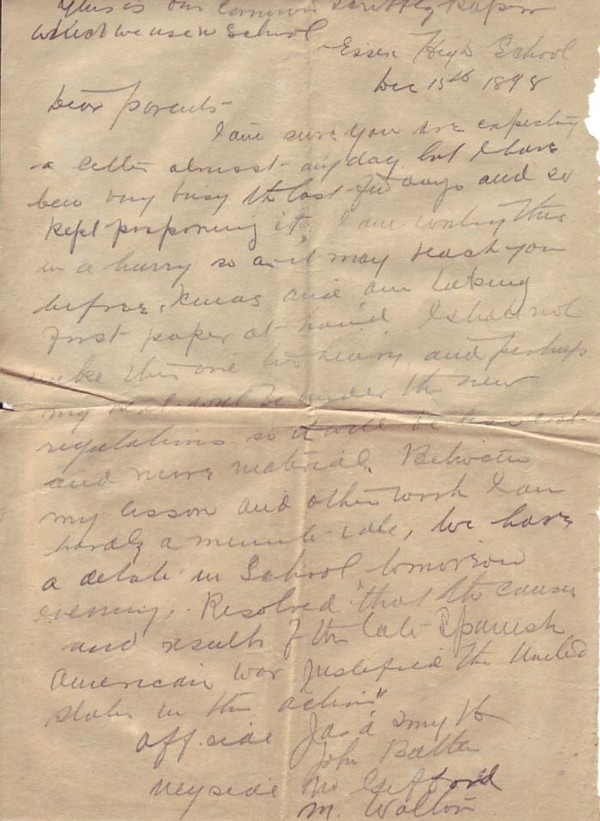 This is our common scribbly paper
which we use in School
Essex High School
Dec 15th 1898
Dear parents-
I am sure you are expecting
a letter almost any day but I have
been very busy the last few days and so
kept posponing it. I am writing this
in a hurry so as it may reach you
before Xmas and am taking
first paper at hand. I shall not
make this one too heavy and perhaps
my next will be under the new
regulations so it will be
and more material. Between
my lesson and other work I am
hardly a minute idle, We have
a debate in School tomorrow
evening,. Resolved "that the causes
and results of the late Spanish
American war Justified the United
States in their action"
Aff. side Jas A Smyth
John Batten
Neg side
M. Walton